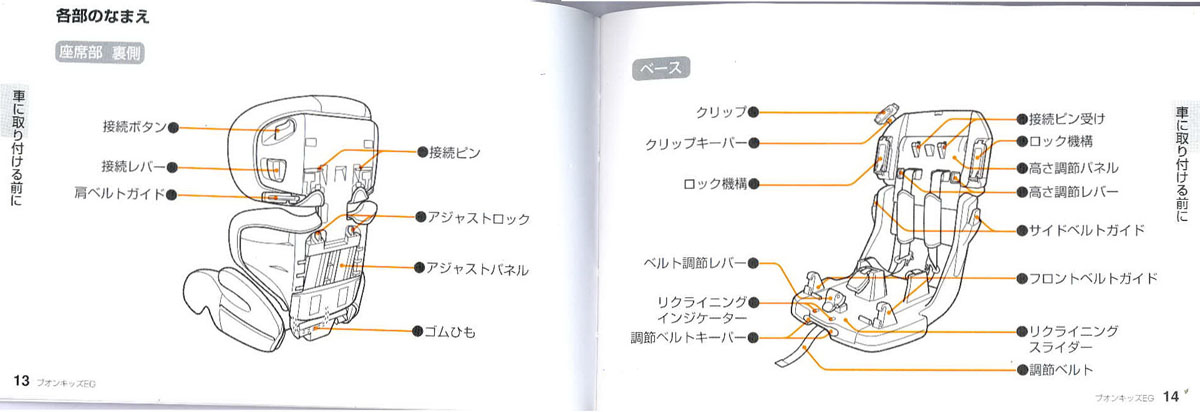 各部のなまえ
座席部 裏側
車に取り付ける前に
接続ボタン
接続レバー
肩ベルトガイド
接続ピン
アジャストロック
アジャストパネル
ゴムひも
13 ブオンキッズEG
ベース
クリップ
クリップキーパー
ロック機構
ベルト調節レバー
リクライニング
インジケーター
調節ベルトキーパー
接続ピン受け
ロック機構
高さ調節パネル
高さ調節レバー
サイドベルトガイド
フロントベルトガイド
リクライニング
スライダー
調節ベルト
車に取り付ける前に
ブオンキッズEG 14